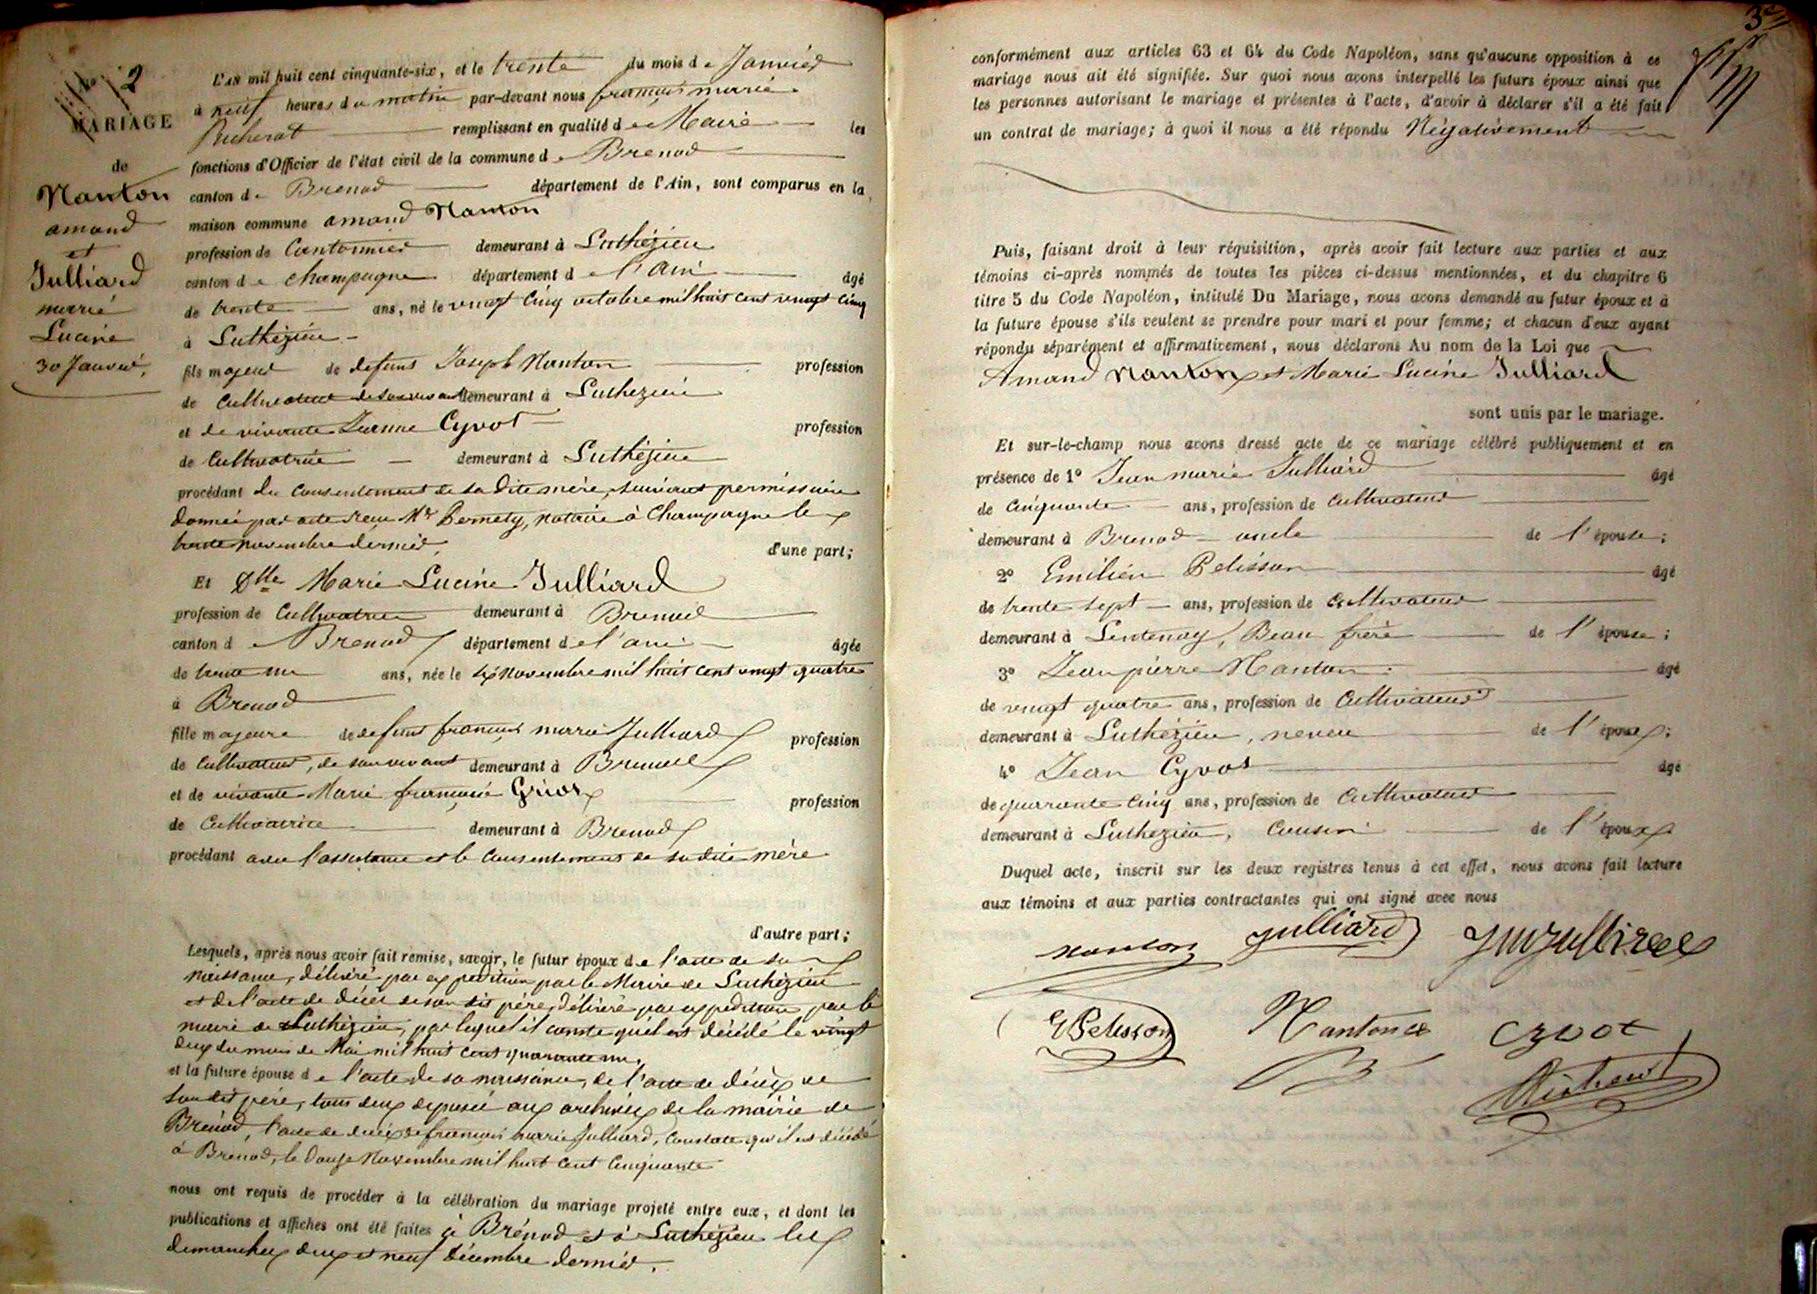 N° 2
MARIAGE
de
Nanton
amand
et
Julliard
marie
Lucine
30 Janvier.
L'AN mil huit cent cinquante-six, et le trente du mois de Janvier
à neuf heures du matin par-devant nous françois marie
Richerot remplissant en qualité de Maire les
fonctions d'Officier de l'état civil de la commune de Brenod
canton de Brenod département de l'Ain, sont comparus en la
maison commune amand Nanton
profession de Cantonnier demeurant à Luthézieu
canton de champagne département de l'ain âgé
de trente ans, né le vingt cinq octobre mil huit cent vingt cinq
à Luthézieu
fils majeur de defunt Joseph Nanton profession
de Cultivateur de son vivant demeurant à Luthezieu
et de vivante Jeanne Cyvot profession
de Cultivatrice demeurant à Luthézieu
procédant du consentement de sa dite mère, suivant permission
donnée par acte reçu Mr , notaire à Champagne le
trente novembre dernier, d'une part;
Et Dlle Marie Lucine Julliard
profession de Cultivatrice demeurant à Brenod
canton de Brenod département de l'ain âgée
de trente un ans, née le six novembre mil huit cent vingt quatre
à Brenod
fille majeure de defunt françois marie Julliard profession
de Cultivateur, de son vivant demeurant à Brenod
et de vivante Marie françoise profession
de Cultivatrice demeurant à Brenod
procédant avec l'assistance et le consentement de sa dite mère
d'autre part;
Lesquels, après nous avoir fait remise, savoir, le futur époux de l'acte de sa
naissance, délivré par expédition par le Maire de Luthézieu
et de l'acte de décès de son dit père, délivré par expédition par le
maire de Luthézieu, par lequel il conste qu'il est décédé le vingt
deux du mois de Mai mil huit cent quarante un.
et la future épouse de l'acte de sa naissance, de l'acte de décès de
son dit père, tous deux déposés aux archives de la mairie de
Brénod, l'acte de décès de françois marie Julliard, constate qu'il est décédé
à Brénod, le douze Novembre mil huit cent cinquante
nous ont requis de procéder à la célébration du mariage projeté entre eux, et dont les
publications et affiches ont été faites à Brénod et à Luthézieu les
dimanches deux et neuf décembre dernier.
3e
conformément aux articles 63 et 64 du Code Napoléon, sans qu'aucune opposition à ce
mariage nous ait été signifiée. Sur quoi nous avons interpellé les futurs époux ainsi que
les personnes autorisant le mariage et présentes à l'acte, d'avoir à déclarer s'il a été fait
un contrat de mariage; à quoi il nous a été répondu Négativement
Puis, faisant droit à leur réquisition, après avoir fait lecture aux parties et aux
témoins ci-après nommés de toutes les pièces ci-dessus mentionnées, et du chapitre 6
titre 5 du Code Napoléon, intitulé Du Mariage, nous avons demandé au futur époux et à
la future épouse s'ils veulent se prendre pour mari et pour femme; et chacun d'eux ayant
répondu séparément et affirmativement, nous déclarons Au nom de la Loi que
Amand Nanton et Marie Lucine Julliard
sont unis par le mariage.
Et sur-le-champ nous avons dressé acte de ce mariage célébré publiquement et en
présence de 1° Jean marie Julliard âgé
de Cinquante ans, profession de Cultivateur
demeurant à Brenod oncle de l'épouse;
2° Emilien Pelisson âgé
de trente sept ans, profession de Cultivateur
demeurant à Lentenay, Beau frère de l'épouse;
3° Jean pierre Nanton âgé
de vingt quatre ans, profession de Cultivateur
demeurant à Luthézieu, neveu de l'époux;
4° Jean Cyvot âgé
de quarante Cinq ans, profession de Cultivateur
demeurant à Luthezieu, Cousin de l'époux
Duquel acte, inscrit sur les deux registres tenus à cet effet, nous avons fait lecture
aux témoins et aux parties contractantes qui ont signé avec nous
nanton julliard jm julliard
E Pelisson Nanton cyvot
Richerot